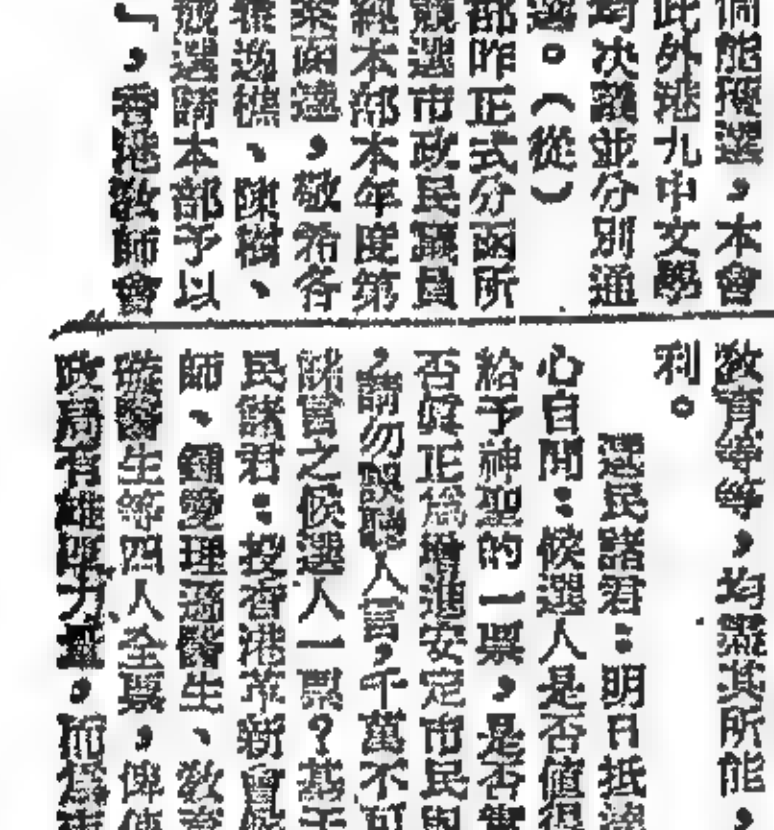 能預選，本會
此外港九中文學
均决議並分別通
選。（從）
部昨正式分函所
競選市政民議員
純本部本年度第
，敬希各
、陳樹、
被選請本部予以
」，香港教師會
教育等等，均盡其所能，
利。
選民諸君：明日抵
心自問：候選人是否值得
給予神聖的一票，是否
否真正為增進安定市民
，請勿誤聽人言，千萬不可
之候選人一票？基于
民諸君：投香港革新會
師、鍾愛理遜醫生、教
醫生等四人全票，俾
政局有雄厚力量，而